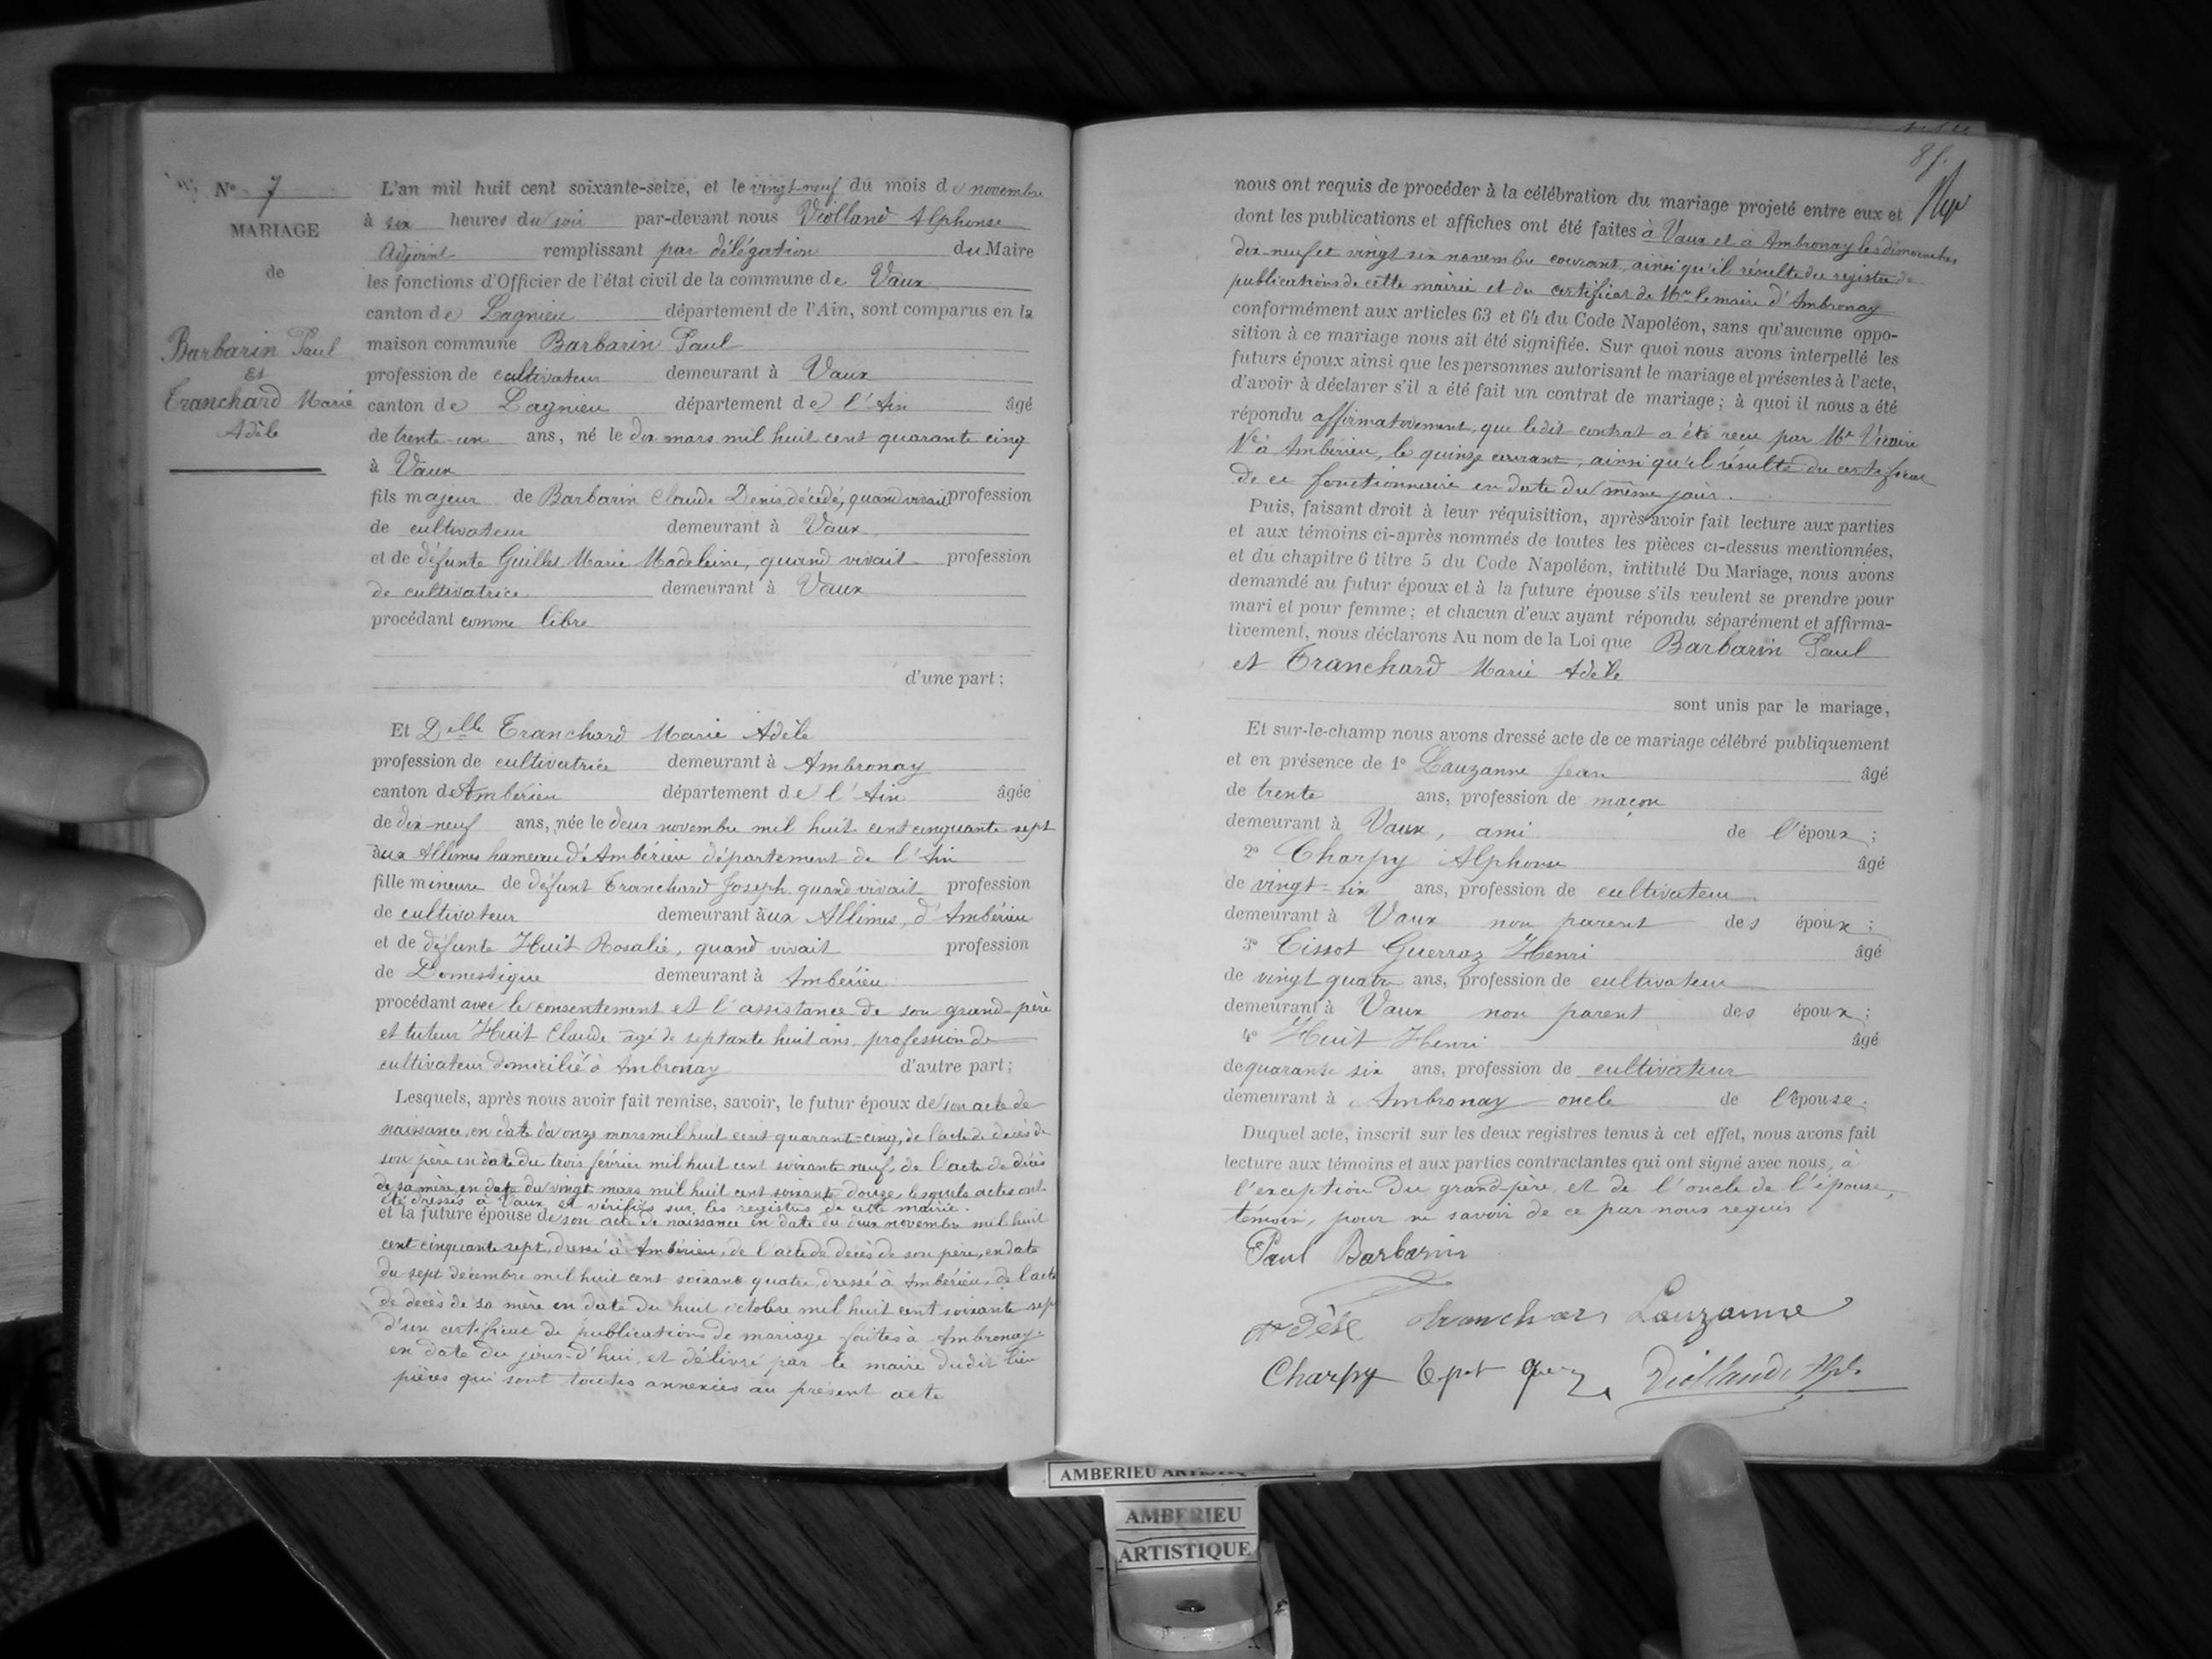 N° 7
MARIAGE
de
Barbarin Paul
Et
Tranchard Marie
Adèle
L'an mil huit cent soixante-seize, et le vingt-neuf du mois de novembre
à six heures du soir par-devant nous Viollard Alphonse
Adjoint remplissant par délégation du Maire
les fonctions d'Officier de l'état civil de la commune de Vaux
canton de Lagnieu département de l'Ain, sont comparus en la
maison commune Barbarin Paul
profession de cultivateur demeurant à Vaux
canton de Lagnieu département de l'Ain âgé
de trente-un ans, né le dix mars mil huit cent quarante cinq
à Vaux
fils majeur de Barbarin Claude Denis décédé, quand vivait profession
de cultivateur demeurant à Vaux
et de défunte Guillet Marie Madeleine, quand vivait profession
de cultivatrice demeurant à Vaux
procédant comme libre
d'une part;
Et Delle Tranchard Marie Adèle
profession de cultivatrice demeurant à Ambronay
canton de Ambérieu département de l'Ain âgée
de dix-neuf ans, née le deux novembre mil huit cent cinquante sept
aux Allimes hameau d'Ambérieu département de l'Ain
fille mineure de défunt Tranchard Joseph quand vivait profession
de cultivateur demeurant aux Allimes, d'Ambérieu
et de défunte Huit Rosalie, quand vivait profession
de Domestique demeurant à Ambérieu
procédant avec le consentement et l'assistance de son grand-père
et tuteur Huit Claude âgé de septante huit ans profession de
cultivateur domicilié à Ambronay d'autre part;
Lesquels, après nous avoir fait remise, savoir, le futur époux de son acte de
naissance, en date du onze mars mil huit cent quarante-cinq, de l'acte de décès de
son père en date du trois février mil huit cent soixante neuf, de l'acte de décès
de sa mère, en date du vingt mars mil huit cent soixante douze, lesquels actes ont
été dressés à Vaux et vérifiés sur les registres de cette mairie.
et la future épouse de son acte de naissance en date du deux novembre mil huit
cent cinquante sept, dressé à Ambérieu, de l'acte de décès de son père, en date
du sept décembre mil huit cent soixante quatre, dressé à Ambérieu, de l'acte
de décès de sa mère en date du huit octobre mil huit cent soixante sept
d'un certificat de publications de mariage faites à Ambronay
en date du jour-d'hui, et délivré par le maire dudit lieu
pièces qui sont toutes annexées au présent acte
nous ont requis de procéder à la célébration du mariage projeté entre eux et
dont les publications et affiches ont été faites à Vaux et à Ambronay les dimanches
dix-neuf et vingt six novembre courant, ainsi qu'il résulte du registre de
publications de cette mairie et du certificat de Mr le maire d'Ambronay
conformément aux articles 63 et 64 du Code Napoléon, sans qu'aucune oppo-
sition à ce mariage nous ait été signifiée. Sur quoi nous avons interpellé les
futurs époux ainsi que les personnes autorisant le mariage et présentes à l'acte,
d'avoir à déclarer s'il a été fait un contrat de mariage; à quoi il nous a été
répondu affirmativement, que ledit contrat a été reçu par Me Vicaire
Nre à Ambérieu, le quinze courant, ainsi qu'il résulte du certificat
de ce fonctionnaire en date du même jour.
Puis, faisant droit à leur réquisition, après avoir fait lecture aux parties
et aux témoins ci-après nommés de toutes les pièces ci-dessus mentionnées,
et du chapitre 6 titre 5 du Code Napoléon, intitulé Du Mariage, nous avons
demandé au futur époux et à la future épouse s'ils veulent se prendre pour
mari et pour femme; et chacun d'eux ayant répondu séparément et affirma-
tivement, nous déclarons Au nom de la Loi que Barbarin Paul
et Tranchard Marie Adèle
sont unis par le mariage,
Et sur-le-champ nous avons dressé acte de ce mariage célébré publiquement
et en présence de 1° Lauzanne Jean âgé
de trente ans, profession de maçon
demeurant à Vaux, ami de l'époux;
2° Charpy Alphonse âgé
de vingt-six ans, profession de cultivateur
demeurant à Vaux non parent des époux;
3° Tissot Guerraz Henri âgé
de vingt quatre ans, profession de cultivateur
demeurant à Vaux non parent des époux;
4° Huit Henri âgé
de quarante six ans, profession de cultivateur
demeurant à Ambronay oncle de l'épouse.
Duquel acte, inscrit sur les deux registres tenus à cet effet, nous avons fait
lecture aux témoins et aux parties contractantes qui ont signé avec nous, à
l'exception du grand-père et de l'oncle de l'épouse,
témoin, pour ne savoir de ce par nous requis
Paul Barbarin
Adèle Tranchard Lauzanne
Charpy
AMBERIEU
AMBERIEU
ARTISTIQUE